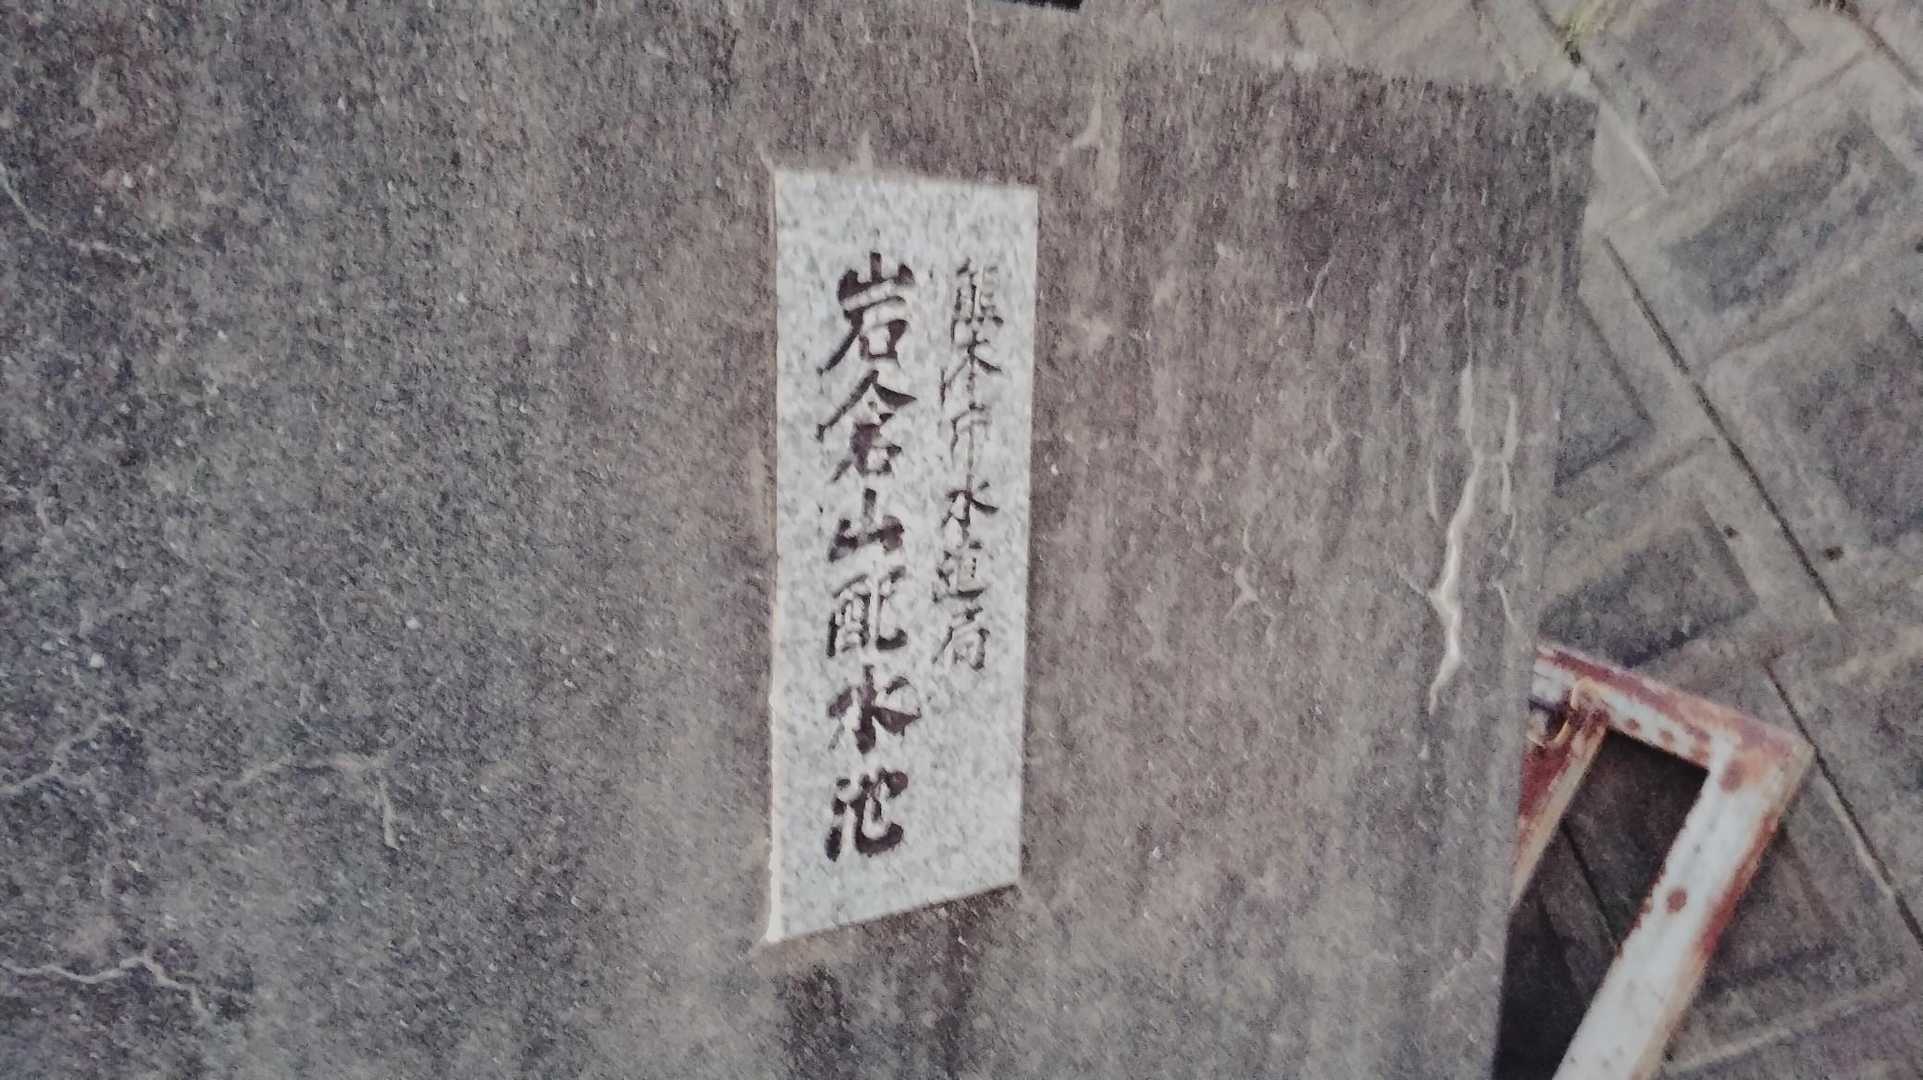 熊本市水道局
岩倉山配水池